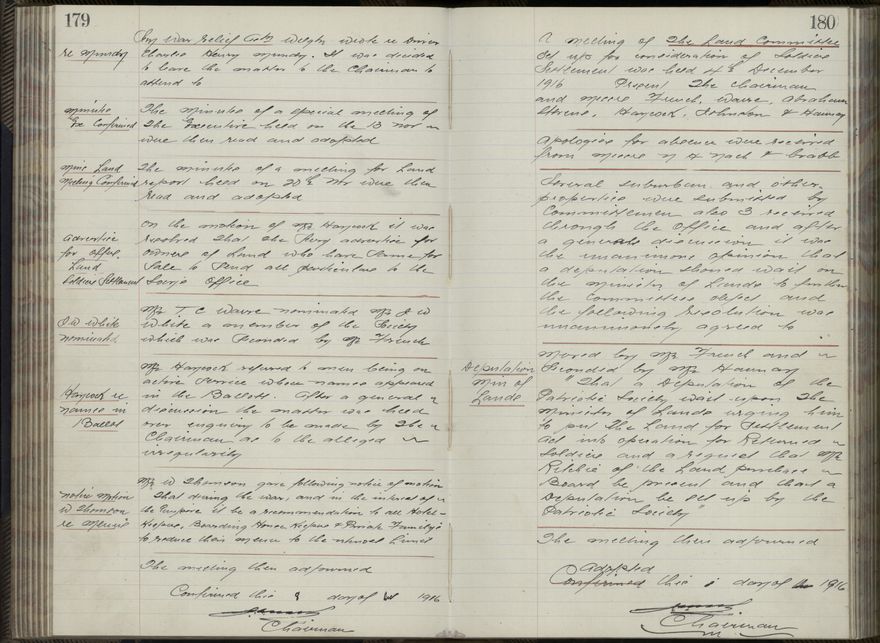 179
re Munday
War Relief wrote re Driver
Charles Henry Munday. It was decided
to leave the matter to the Chairman to
attend to
Minutes
Ex Confirmed
The minutes of a special meeting of
the Executive held on the 13 Nov
were then read and adopted
Mins Land
Meeting Confirmed
The minutes of a meeting for Land
report held on 20th Nov were then
read and adopted
Advertise
for offers
Land
Soldiers Settlement
On the motion of Mr Haycock it was
resolved that the Secy advertise for
owners of Land who have same for
Sale to send all particulars to the
Socy's Office
J W White
nominated
Mr T C Warre nominated Mr J W
White a member of the Society
which was seconded by Mr French
Haycock re
names in
Ballot
Mr Haycock referred to men being on
active service whose names appeared
in the Ballots. After a general
discussion the matter was held
over enquiry to be made by the
Chairman as to the alleged
irregularity
Notice Motion
W Thomson
re Menus
Mr W Thomson gave following notice of motion
That during the war, and in the interest of
the Empire it be a recommendation to all Hotel-
Keepers, Boarding House Keepers & Private Family's
to reduce their menus to the utmost Limit
The meeting then adjourned
Confirmed this day of 1916
Chairman
180
A meeting of the Land Committee
set up for consideration of Soldiers
Settlement was held 4th December
1916 Present The Chairman
and Messrs French, Warre, Abraham
Stevens, Haycock, Johnston & Hannay
Apologies for absence were received
from Messrs Nash & Crabb
Several suburban and other
properties were submitted by
Committeemen also 3 received
through the office and after
a general discussion it was
the unanimous opinion that
a deputation should wait on
the Minister of Lands to further
the Committees object and
the following resolution was
unanimously agreed to
Deputation
Min of
Lands
Moved by Mr French and
Seconded by Mr Hannay
"That a Deputation of the
Patriotic Society wait upon the
Minister of Lands urging him
to put the Land for Settlement
Act into operation for Returned
Soldiers and a request that Mr
Ritchie of the Land purchase
Board be present and that a
Deputation be set up by the
Patriotic Society"
The meeting then adjourned
Adopted
Confirmed this day of 1916
Chairman